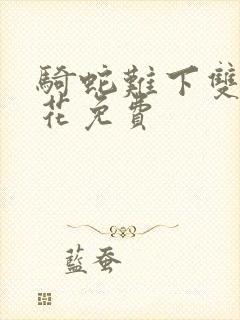 騎蛇難下雙
花免費
藍蚕